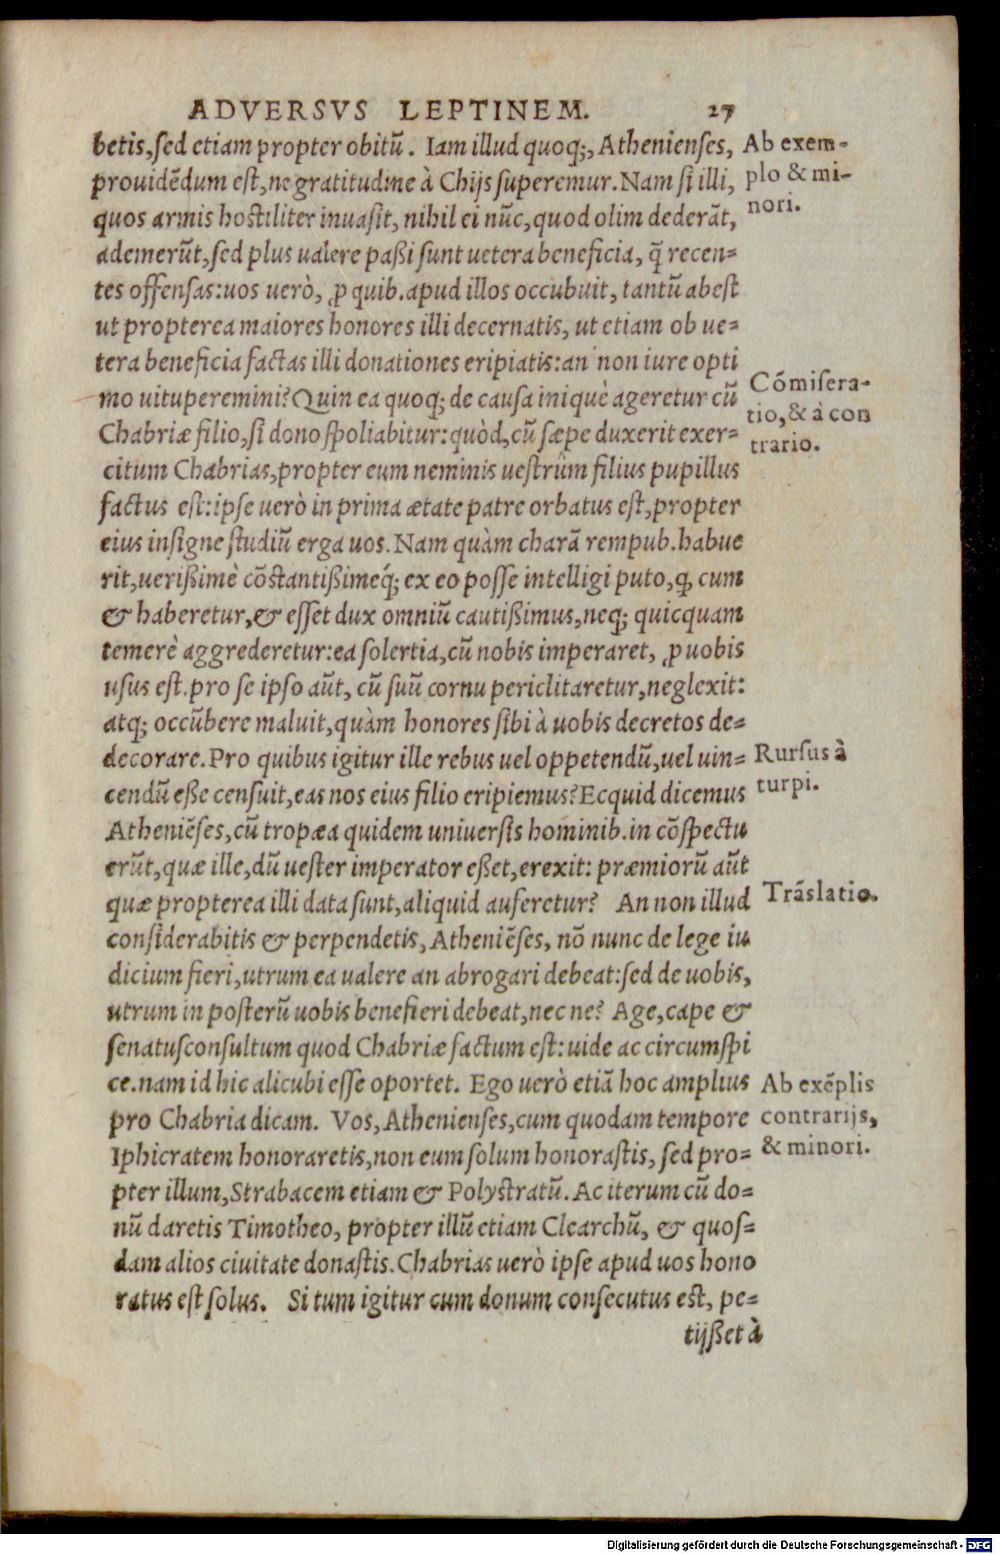 ADVERSVS LEPTINEM. 27
betis, sed etiam propter obitũ. Iam illud quoq;, Athenienses,
prouidẽdum est, ne gratitudine à Chijs superemur. Nam si illi,
quos armis hostiliter inuasit, nihil ei nũc, quod olim dederãt,
ademerũt, sed plus ualere paßi sunt uetera beneficia, q̃ recen=
tes offensas: uos uerò, ꝓ quib. apud illos occubuit, tantũ abest
ut propterea maiores honores illi decernatis, ut etiam ob ue=
tera beneficia factas illi donationes eripiatis: an non iure opti
mo uituperemini? Quin ea quoq; de causa iniquè ageretur cũ
Chabriæ filio, si dono spoliabitur: quòd, cũ sæpe duxerit exer=
citum Chabrias, propter eum neminis uestrûm filius pupillus
factus est: ipse uerò in prima ætate patre orbatus est, propter
eius insigne studiũ erga uos. Nam quàm charã rempub. habue
rit, uerißimè cõstantißimeq́; ex eo posse intelligi puto, ꝙ cum
& haberetur, & esset dux omniũ cautißimus, neq; quicquam
temerè aggrederetur: ea solertia, cũ nobis imperaret, ꝓ uobis
usus est. pro se ipso aũt, cũ suũ cornu periclitaretur, neglexit:
atq; occũbere maluit, quàm honores sibi à uobis decretos de=
decorare. Pro quibus igitur ille rebus uel oppetendũ, uel uin=
cendũ eße censuit, eas nos eius filio eripiemus? Ecquid dicemus
Atheniẽses, cũ tropæa quidem uniuersis hominib. in cõspectu
erũt, quæ ille, dũ uester imperator eßet, erexit: præmiorũ aũt
quæ propterea illi data sunt, aliquid auferetur? An non illud
considerabitis & perpendetis, Atheniẽses, nõ nunc de lege iu
dicium fieri, utrum ea ualere an abrogari debeat: sed de uobis,
utrum in posterũ uobis benefieri debeat, nec ne? Age, cape &
senatusconsultum quod Chabriæ factum est: uide ac circumspi
ce. nam id hic alicubi esse oportet. Ego uerò etiã hoc amplius
pro Chabria dicam. Vos, Athenienses, cum quodam tempore
Iphicratem honoraretis, non eum solum honorastis, sed pro=
pter illum, Strabacem etiam & Polystratũ. Ac iterum cũ do=
nũ daretis Timotheo, propter illũ etiam Clearchũ, & quos=
dam alios ciuitate donastis. Chabrias uerò ipse apud uos hono
ratus est solus. Si tum igitur cum donum consecutus est, pe=
tijßet à
Ab exem-
plo & mi-
nori.
Cõmisera-
tio, & à con
trario.
Rursus à
turpi.
Trãslatio.
Ab exẽplis
contrarijs,
& minori.
Digitalisierung gefördert durch die Deutsche Forschungsgemeinschaft - DFG